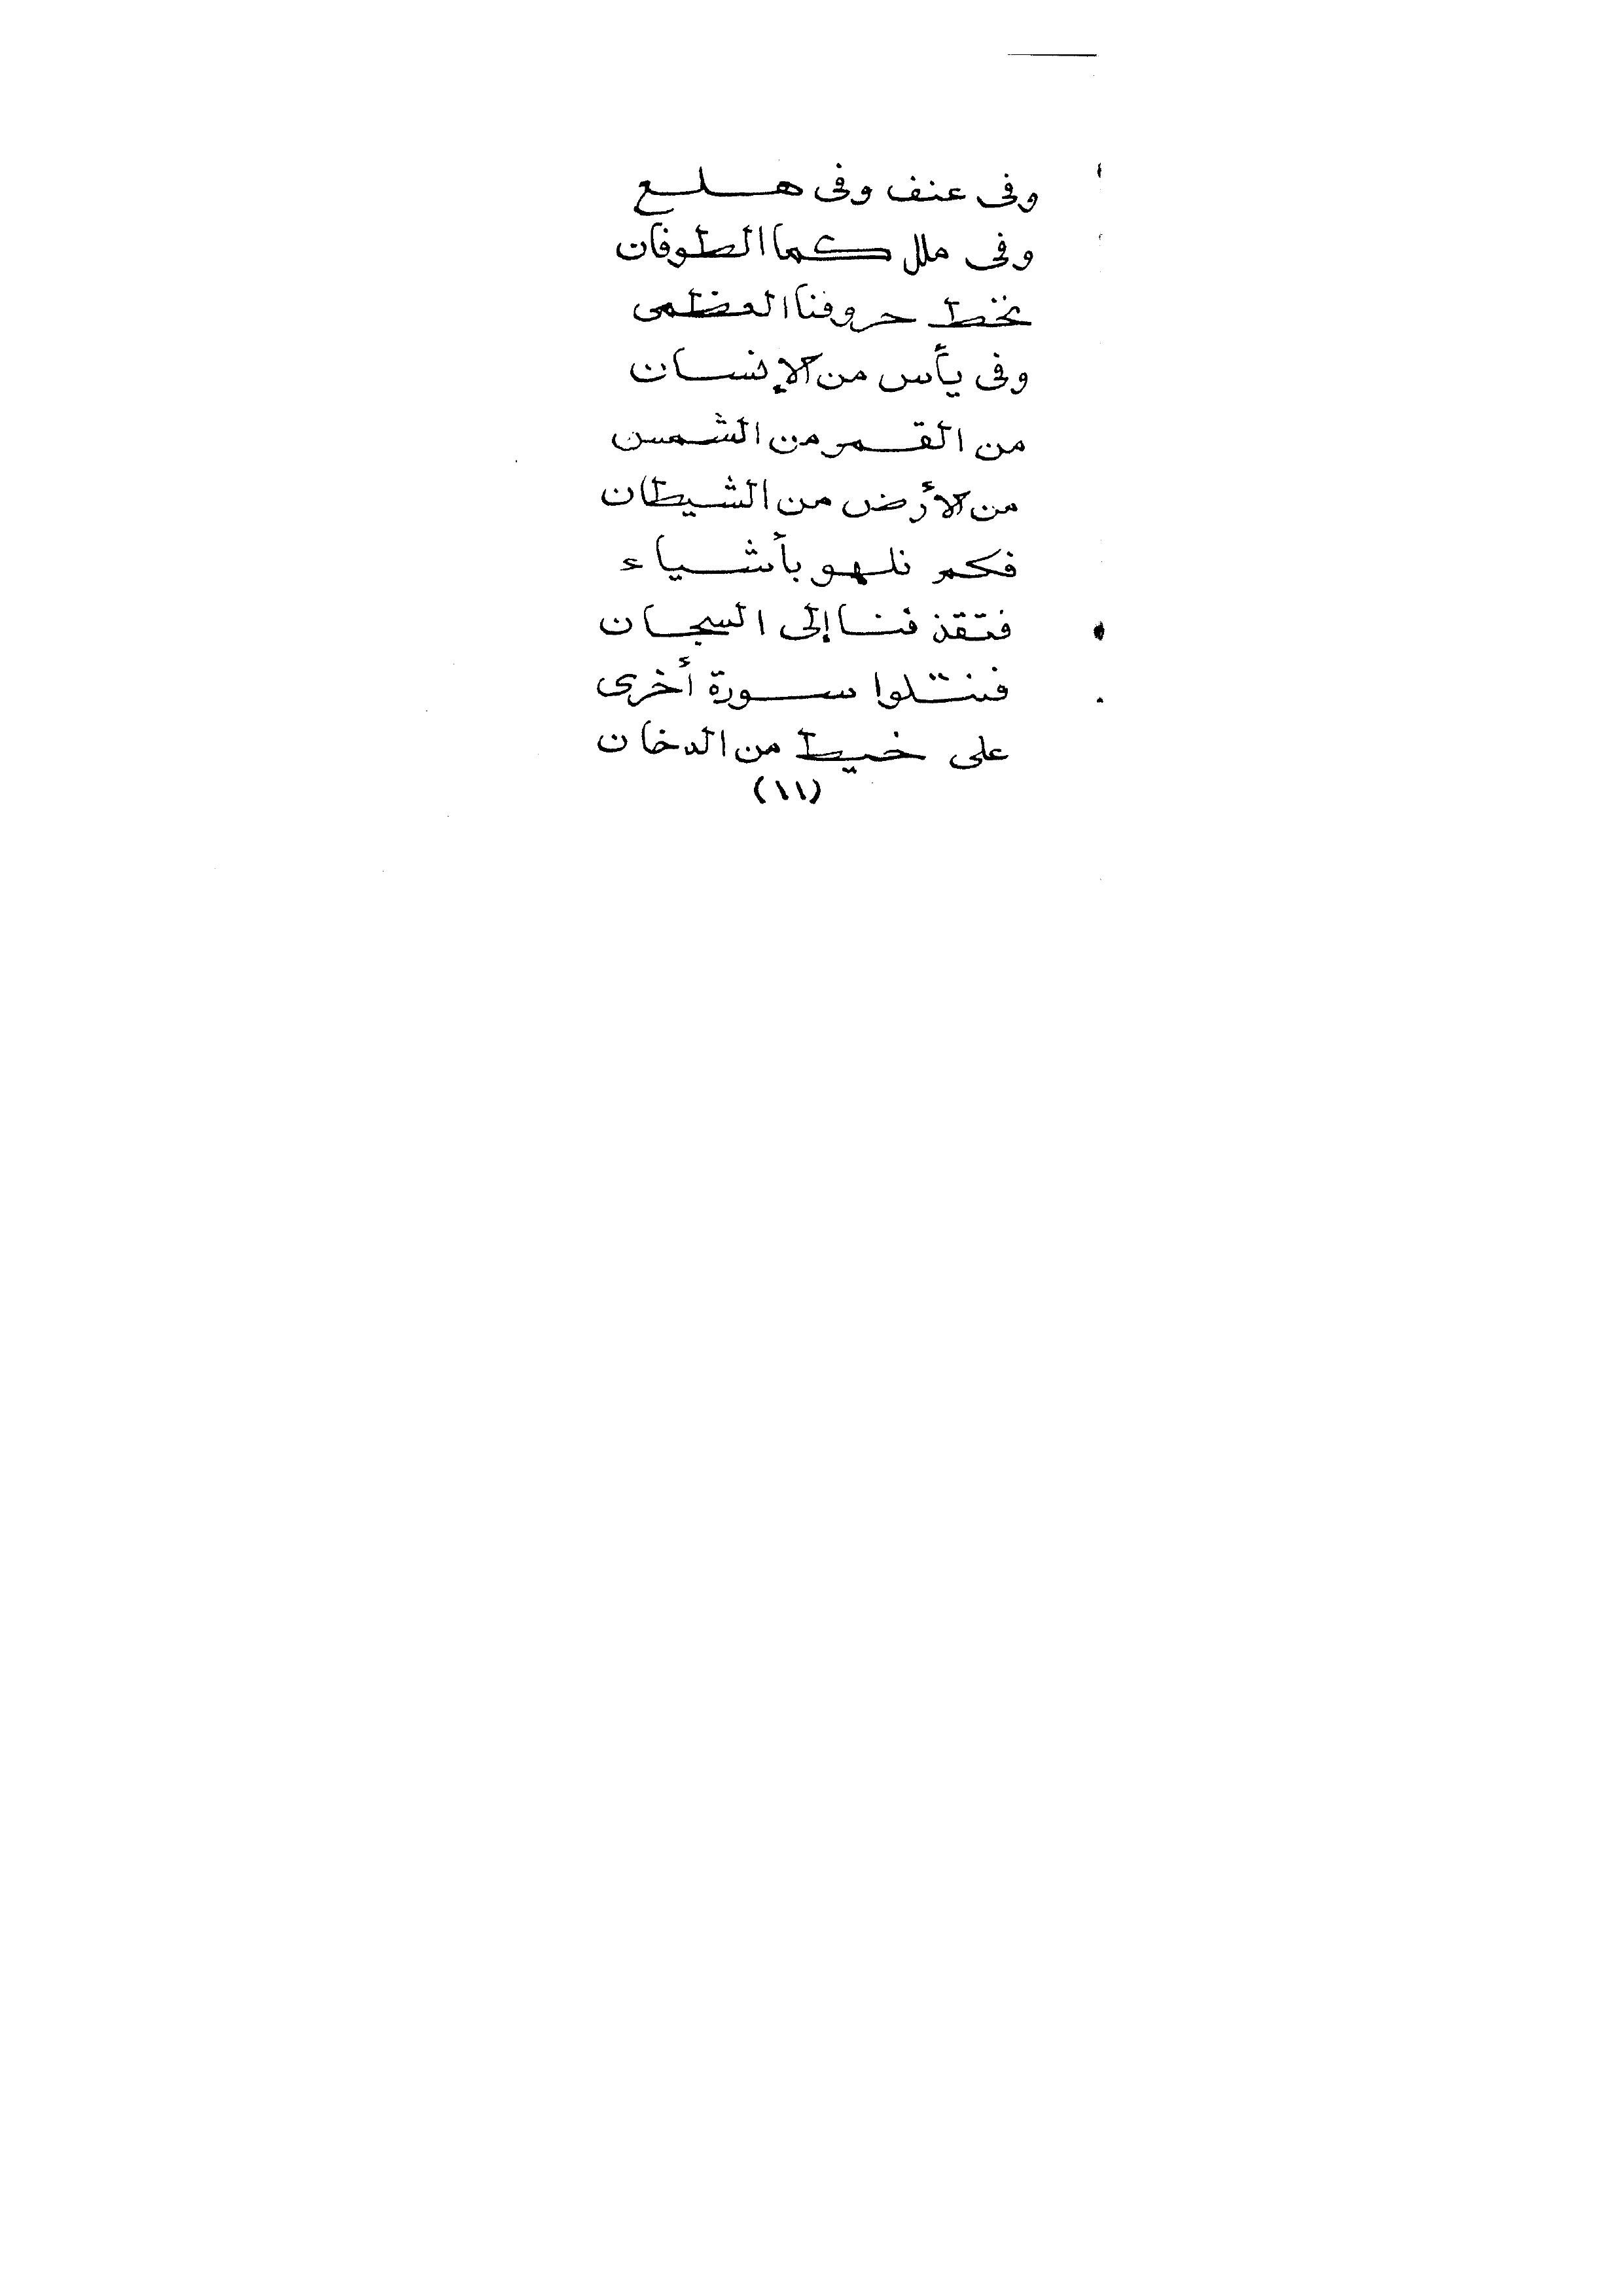 وفى عنف وفى هلع
وفى ملل كما الطوفان
نخط حروفنا العظمى
وفى يأس من الإنسان
من القمر من الشمس
من الأرض من الشيطان
فكم نلهو بأشياء
فتقذفنا إلى السجان
فنتلوا سورة أخرى
على خيط من الدخان
(١١)